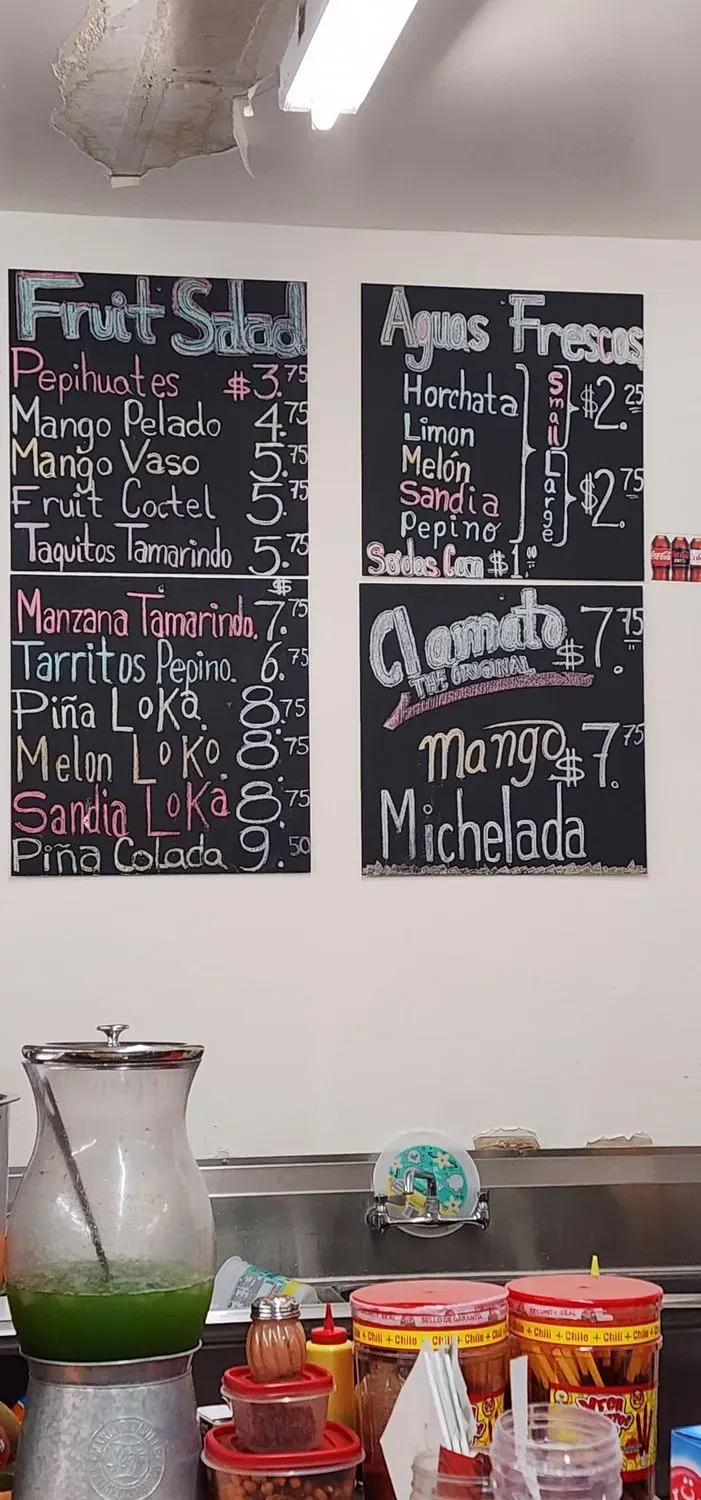 Fruit Salad
Pepihuates $3.75
Mango Pelado 4.75
Mango Vaso 5.75
Fruit Coctel 5.75
Taquitos Tamarindo 5.75
$
Manzana Tamarindo. 7.75
Tarritos Pepino. 6.75
Piña LoKa. 8.75
Melon LoKo. 8.75
Sandia LoKa 8.75
Piña Colada 9.50
Aguas Frescas
Horchata
Limon
Melón
Sandia
Pepino
Small $2.25
Large $2.75
Sodas Can $1.00
Clamato $7.75
THE ORIGINAL
mango $7.75
Michelada
Coca-Cola
SECURITY SEAL
SELLO DE GARANTIA
+ Chili + Chilo + Chili +
SECURITY SEAL
Chili + Chilo + Chili + Chilo